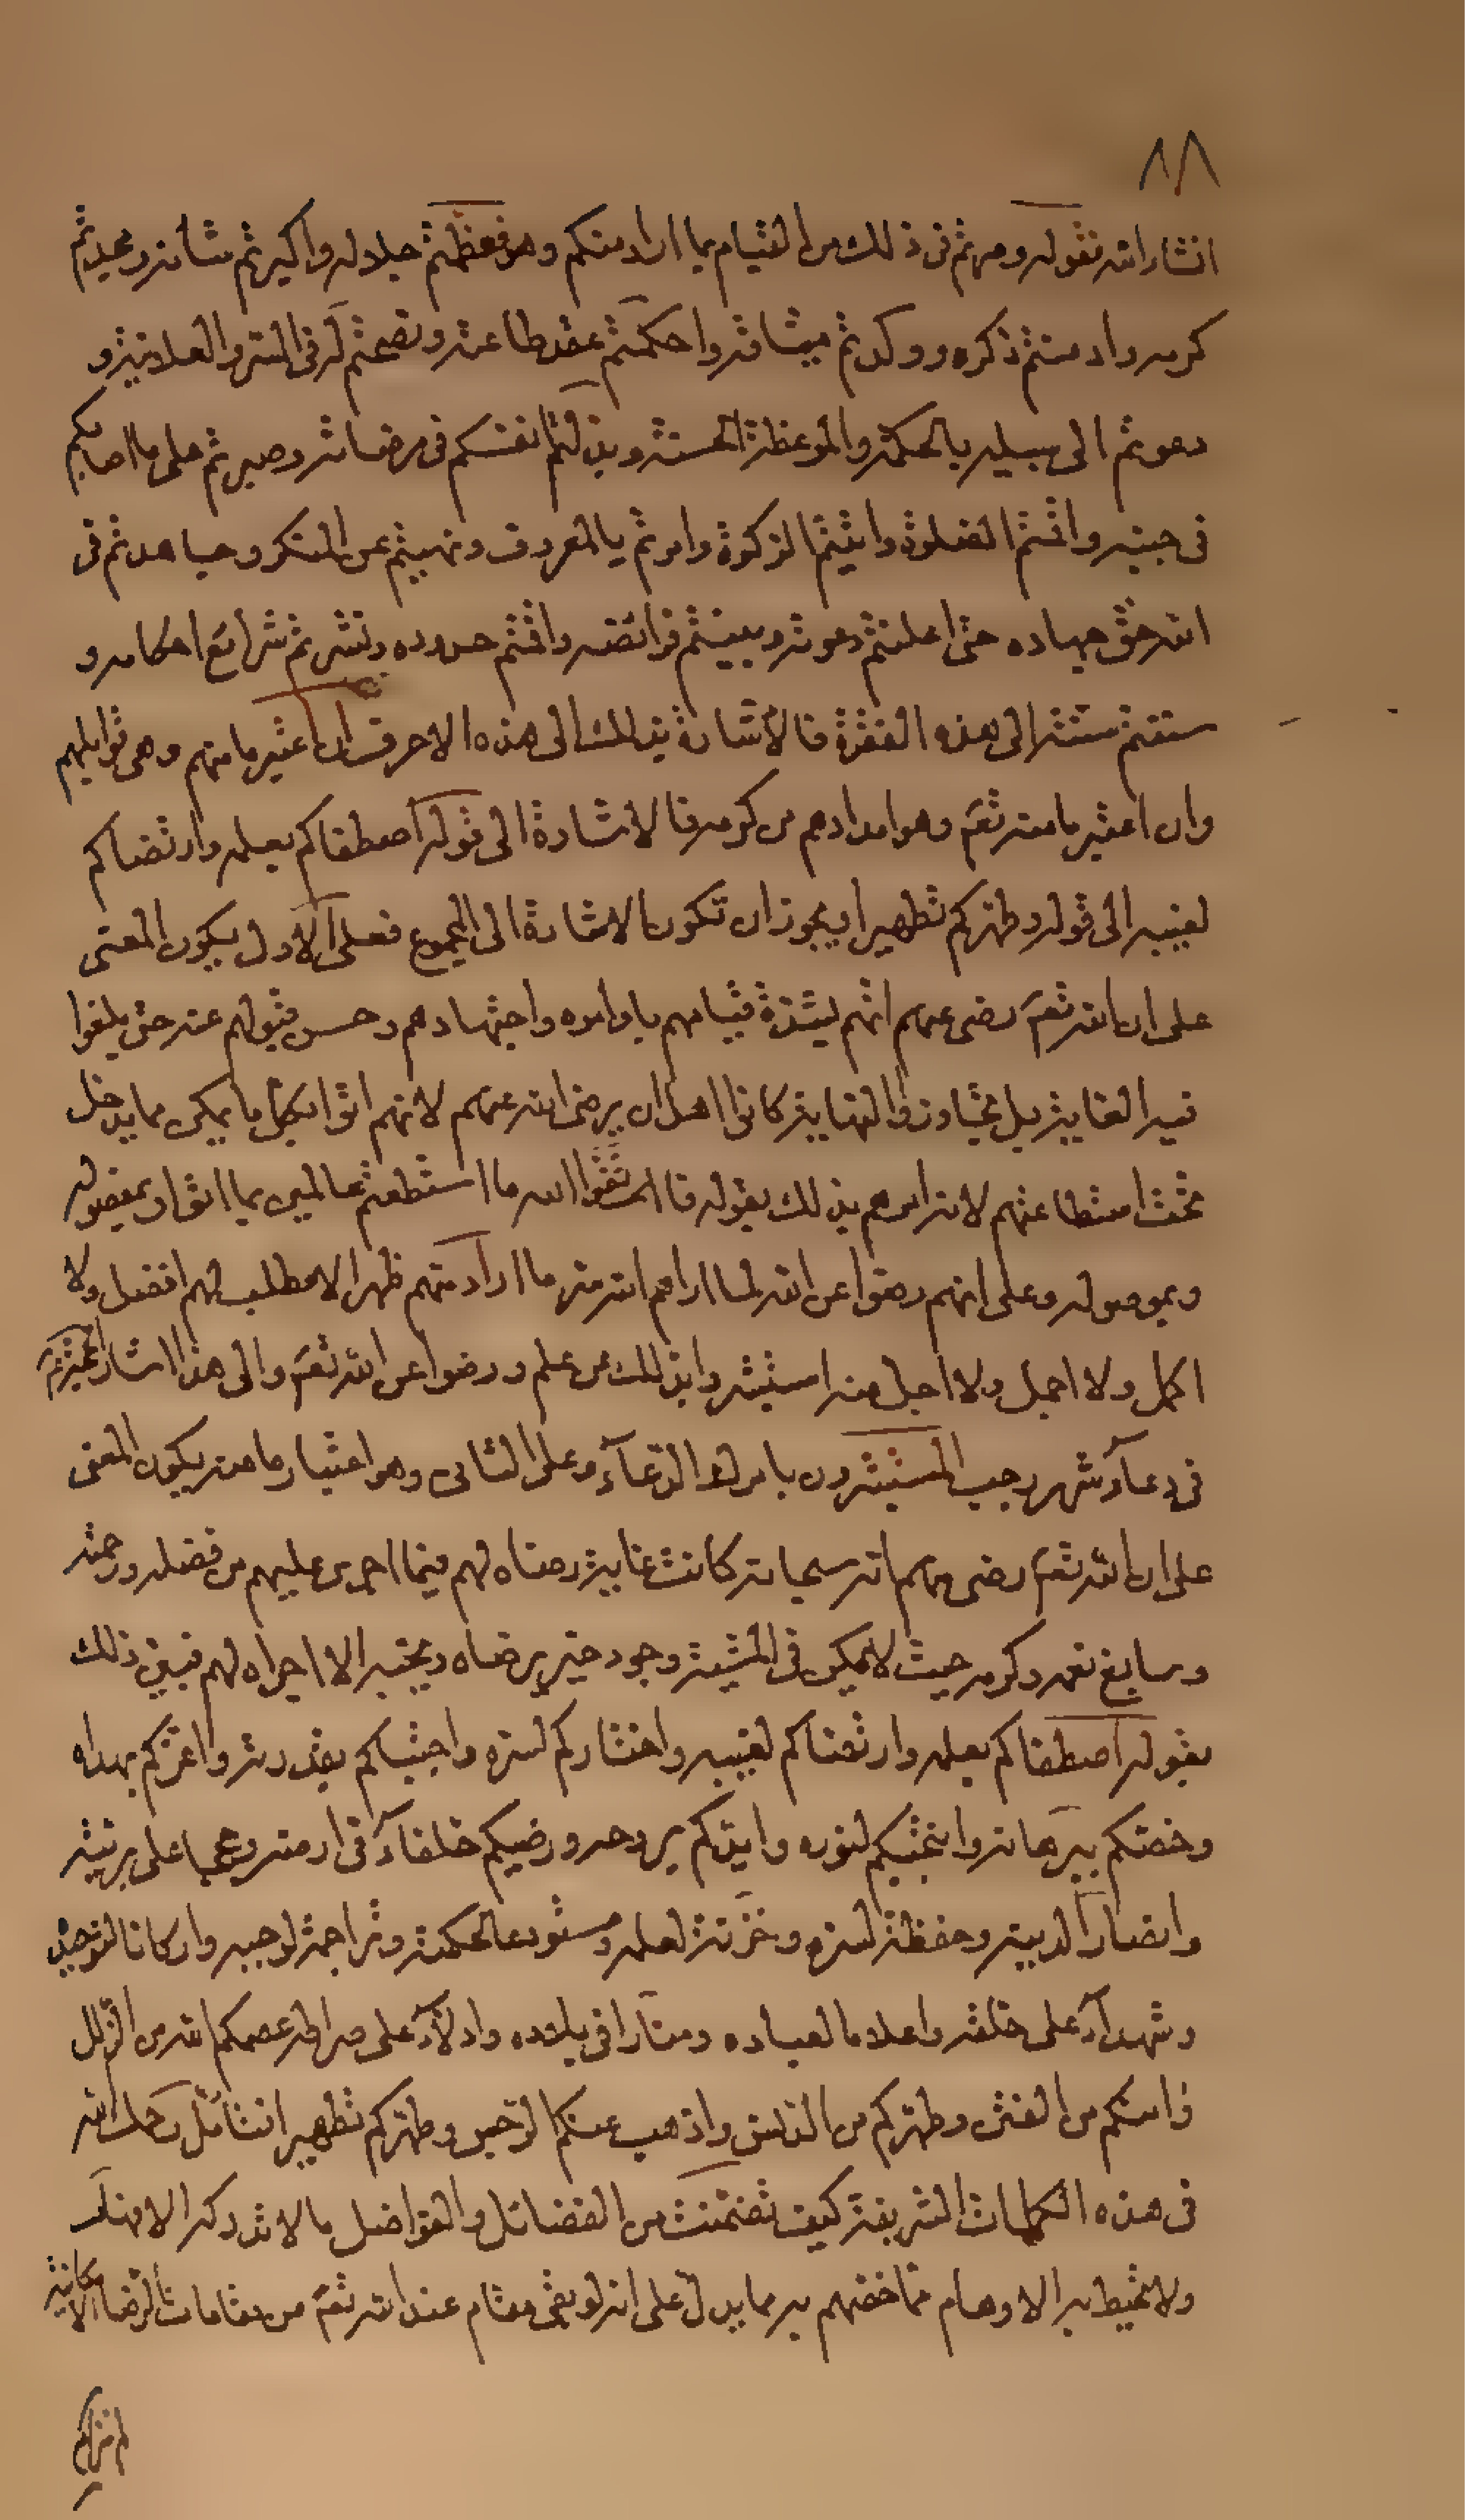 ٨٨
انشاء الله بقوله وصرتم فى ذلك من القيام بما اراد منكم وهو فعظمتم جلاله واكبرتم شأنه ومجدتم
كرمه وادمنتم ذكره ووكدتم ميثاقه واحكمتم عقد طاعته ونصحتم له فى السر والعلانية و
دعوتم الى سبيله بالحكمة والموعظة الحسنة وبذلتم انفسكم فى مرضاته وصبرتم على ما اصابكم
فى جنبه واقمتم الصلوة واتيتم الزكوة وامرتم بالمعروف ونهيتم عن المنكر وجاهدتم فى
الله حق جهاده حتى اعلنتم دعوته وبينتم فرائضه واقمتم حدوده ونشرتم شرائع احكامه و
سننتم سنته الى هذه الفقرة فالاشارة بذلك الى هذه الاحرف ان اعتبر ما منهم وهى قوابلهم
وان اعتبر ما منه تعۤ وهو امدادهم من كرمه فالاشارة الى قوله اصطفاكم بعلمه وارتضاكم
لغيبه الى قوله وطهركم تطهيرا ويجوز ان تكون الاشارة الى المجموع فعلى الاول يكون المعنى
على ان الله تعۤ رضى عنهم انهم لشدة قيامهم باوامره واجتهادهم وحسن قبولهم عنه حتى بلغوا
فيه الغاية بل تجاوزوا النهاية كانوا اهل ان يرضى الله عنهم لانهم اتوا بكل ما يمكن مما يدخل
تحت استطاعتهم لانه امرهم بذلك بقوله فاتقوا الله ما استطعتم عالمين بما اتوا به بمفصوله
وبموصوله وعلى انهم رضوا عن الله لما اراهم الله منه ما اراد منهم ظهر الا مطلب لهم افضل ولا
اكمل ولا اجمل ولا اجل منه استبشروا بذلك عن علم ورضوا عن الله تعۤ والى هذا اشار الحجة عۤ
فى دعاۤء شهر رجب المستبشرون بامرك الدعاۤء وعلى الثانى وهو اعتبار ما منه يكون المعنى
على ان الله تعۤ رضى عنهم انه سبحانه كانت غاية رضاه لهم فيما اجرى عليهم من فضله ورحمته
وسابغ نعمه وكرمه حيث لا يمكن فى المشية وجود خير يرضاه ويحبه الا اجراه لهم فبين ذلك
بقوله اصطفاكم بعلمه وارتضاكم لغيبه واختاركم لسره واجتباكم بقدرته واعزكم بهداه
وخصكم ببرهانه وانتجبكم لنوره وايدكم بروحه ورضيكم خلفاۤء فى ارضه وحججا على بريته
وانصارا لدينه وحفظة لسره وخزنة لعلمه ومستودعا لحكمته وتراجمة لوحيه واركانا لتوحيده
وشهداۤء على خلقه واعلاما لعباده ومنارا فى بلاده وادلاۤء على صراطه عصمكم الله من الزلل
وامنكم من الفتن وطهركم من الدنس واذهب عنكم الرجس وطهركم تطهيرا فتأمل رحمك الله
فى هذه الكلمات الشريفة كيف تضمنت من الفضائل والفواضل ما لا تدركه الافهام
ولا تحيط به الاوهام مما خصهم به مما يدل على انه لو بقى مقام عند الله تعۤ من مقامات الرضا الامكانية
لم